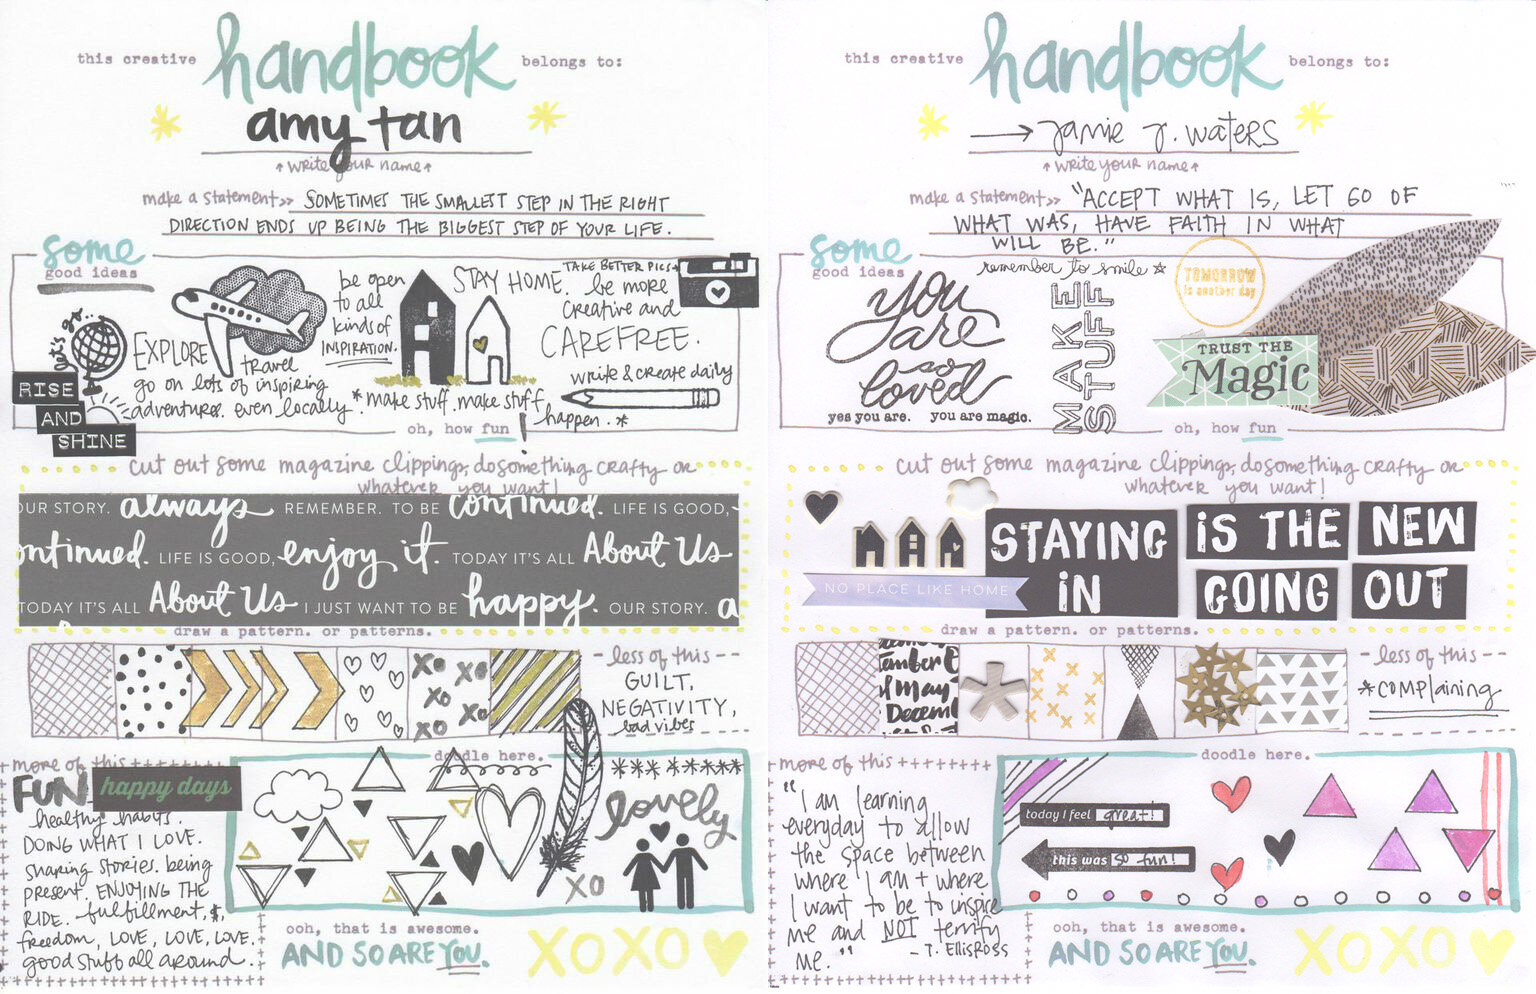 this creative handbook belongs to:
amy tan
↑write your name↑
make a statement>> SOMETIMES THE SMALLEST STEP IN THE RIGHT
DIRECTION ENDS UP BEING THE BIGGEST STEP OF YOUR LIFE.
some
good ideas
let's go...
RISE
AND
SHINE
EXPLORE
travel
go on lots of inspiring
adventures. even locally
be open
to all
kinds of
INSPIRATION.
STAY HOME.
*make stuff. make stuff
happen.*
TAKE BETTER PICS→
be more
creative and
CAREFREE.
write & create daily
oh, how fun!
cut out some magazine clippings, do something crafty or
whatever you want!
OUR STORY. always REMEMBER. TO BE continued. LIFE IS GOOD,
ontinued. LIFE IS GOOD, enjoy it. TODAY IT'S ALL About Us
TODAY IT'S ALL About Us I JUST WANT TO BE happy. OUR STORY. a
draw a pattern. or patterns.
XO XO
XO
XO XO
-less of this--
GUILT,
NEGATIVITY,
bad vibes
more of this +++++++
FUN happy days
healthy habits.
DOING WHAT I LOVE.
sharing stories. being
present. ENJOYING THE
RIDE. fulfillment,
freedom, LOVE, LOVE, LOVE.
good stuff all around.
doodle here.
*** *****
lovely
XO
ooh, that is awesome.
AND SO ARE YOU.
XOXO♥
this creative handbook belongs to:
→ Jamie J. Waters
↑write your name↑
make a statement>> "ACCEPT WHAT IS, LET GO OF
WHAT WAS, HAVE FAITH IN WHAT
WILL BE."
some
good ideas
you
are
so
loved
yes you are. you are magic.
remember to smile ☆
MAKE
STUFF
TOMORROW
is another day
TRUST THE
Magic
oh, how fun
cut out some magazine clippings, do something crafty or
whatever you want!
NO PLACE LIKE HOME
STAYING IS THE NEW
IN GOING OUT
draw a pattern. or patterns.
ember
of May
Decem
-less of this--
*complaining
more of this +++++++
"I am learning
everyday to allow
the space between
where I am + where
I want to be to inspire
me and NOT terrify
me." -T. Ellis Ross
doodle here.
today I feel great!
this was so fun!
ooh, that is awesome.
AND SO ARE YOU.
XOXO♥